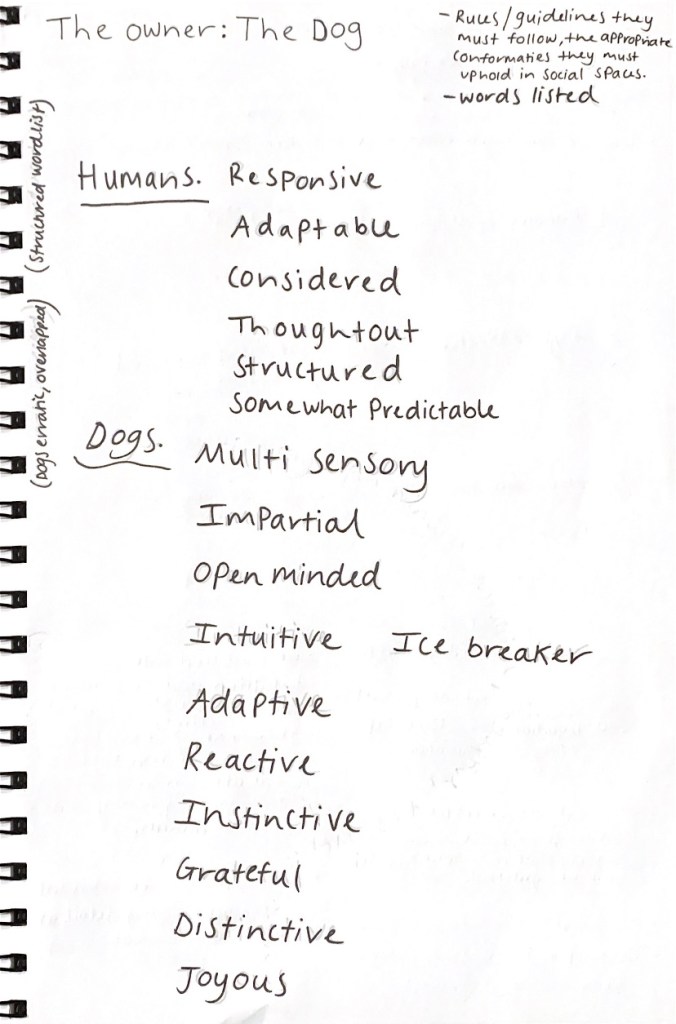 The owner: The Dog
- Rules/guidelines they
must follow, the appropriate
conformaties they must
uphold in social spaces.
- words listed
(Structured wordlist)
Humans. Responsive
Adaptable
Considered
Thoughtout
Structured
Somewhat Predictable
(Dogs erratic, overlapped)
Dogs. Multi Sensory
Impartial
Open minded
Intuitive Ice breaker
Adaptive
Reactive
Instinctive
Grateful
Distinctive
Joyous